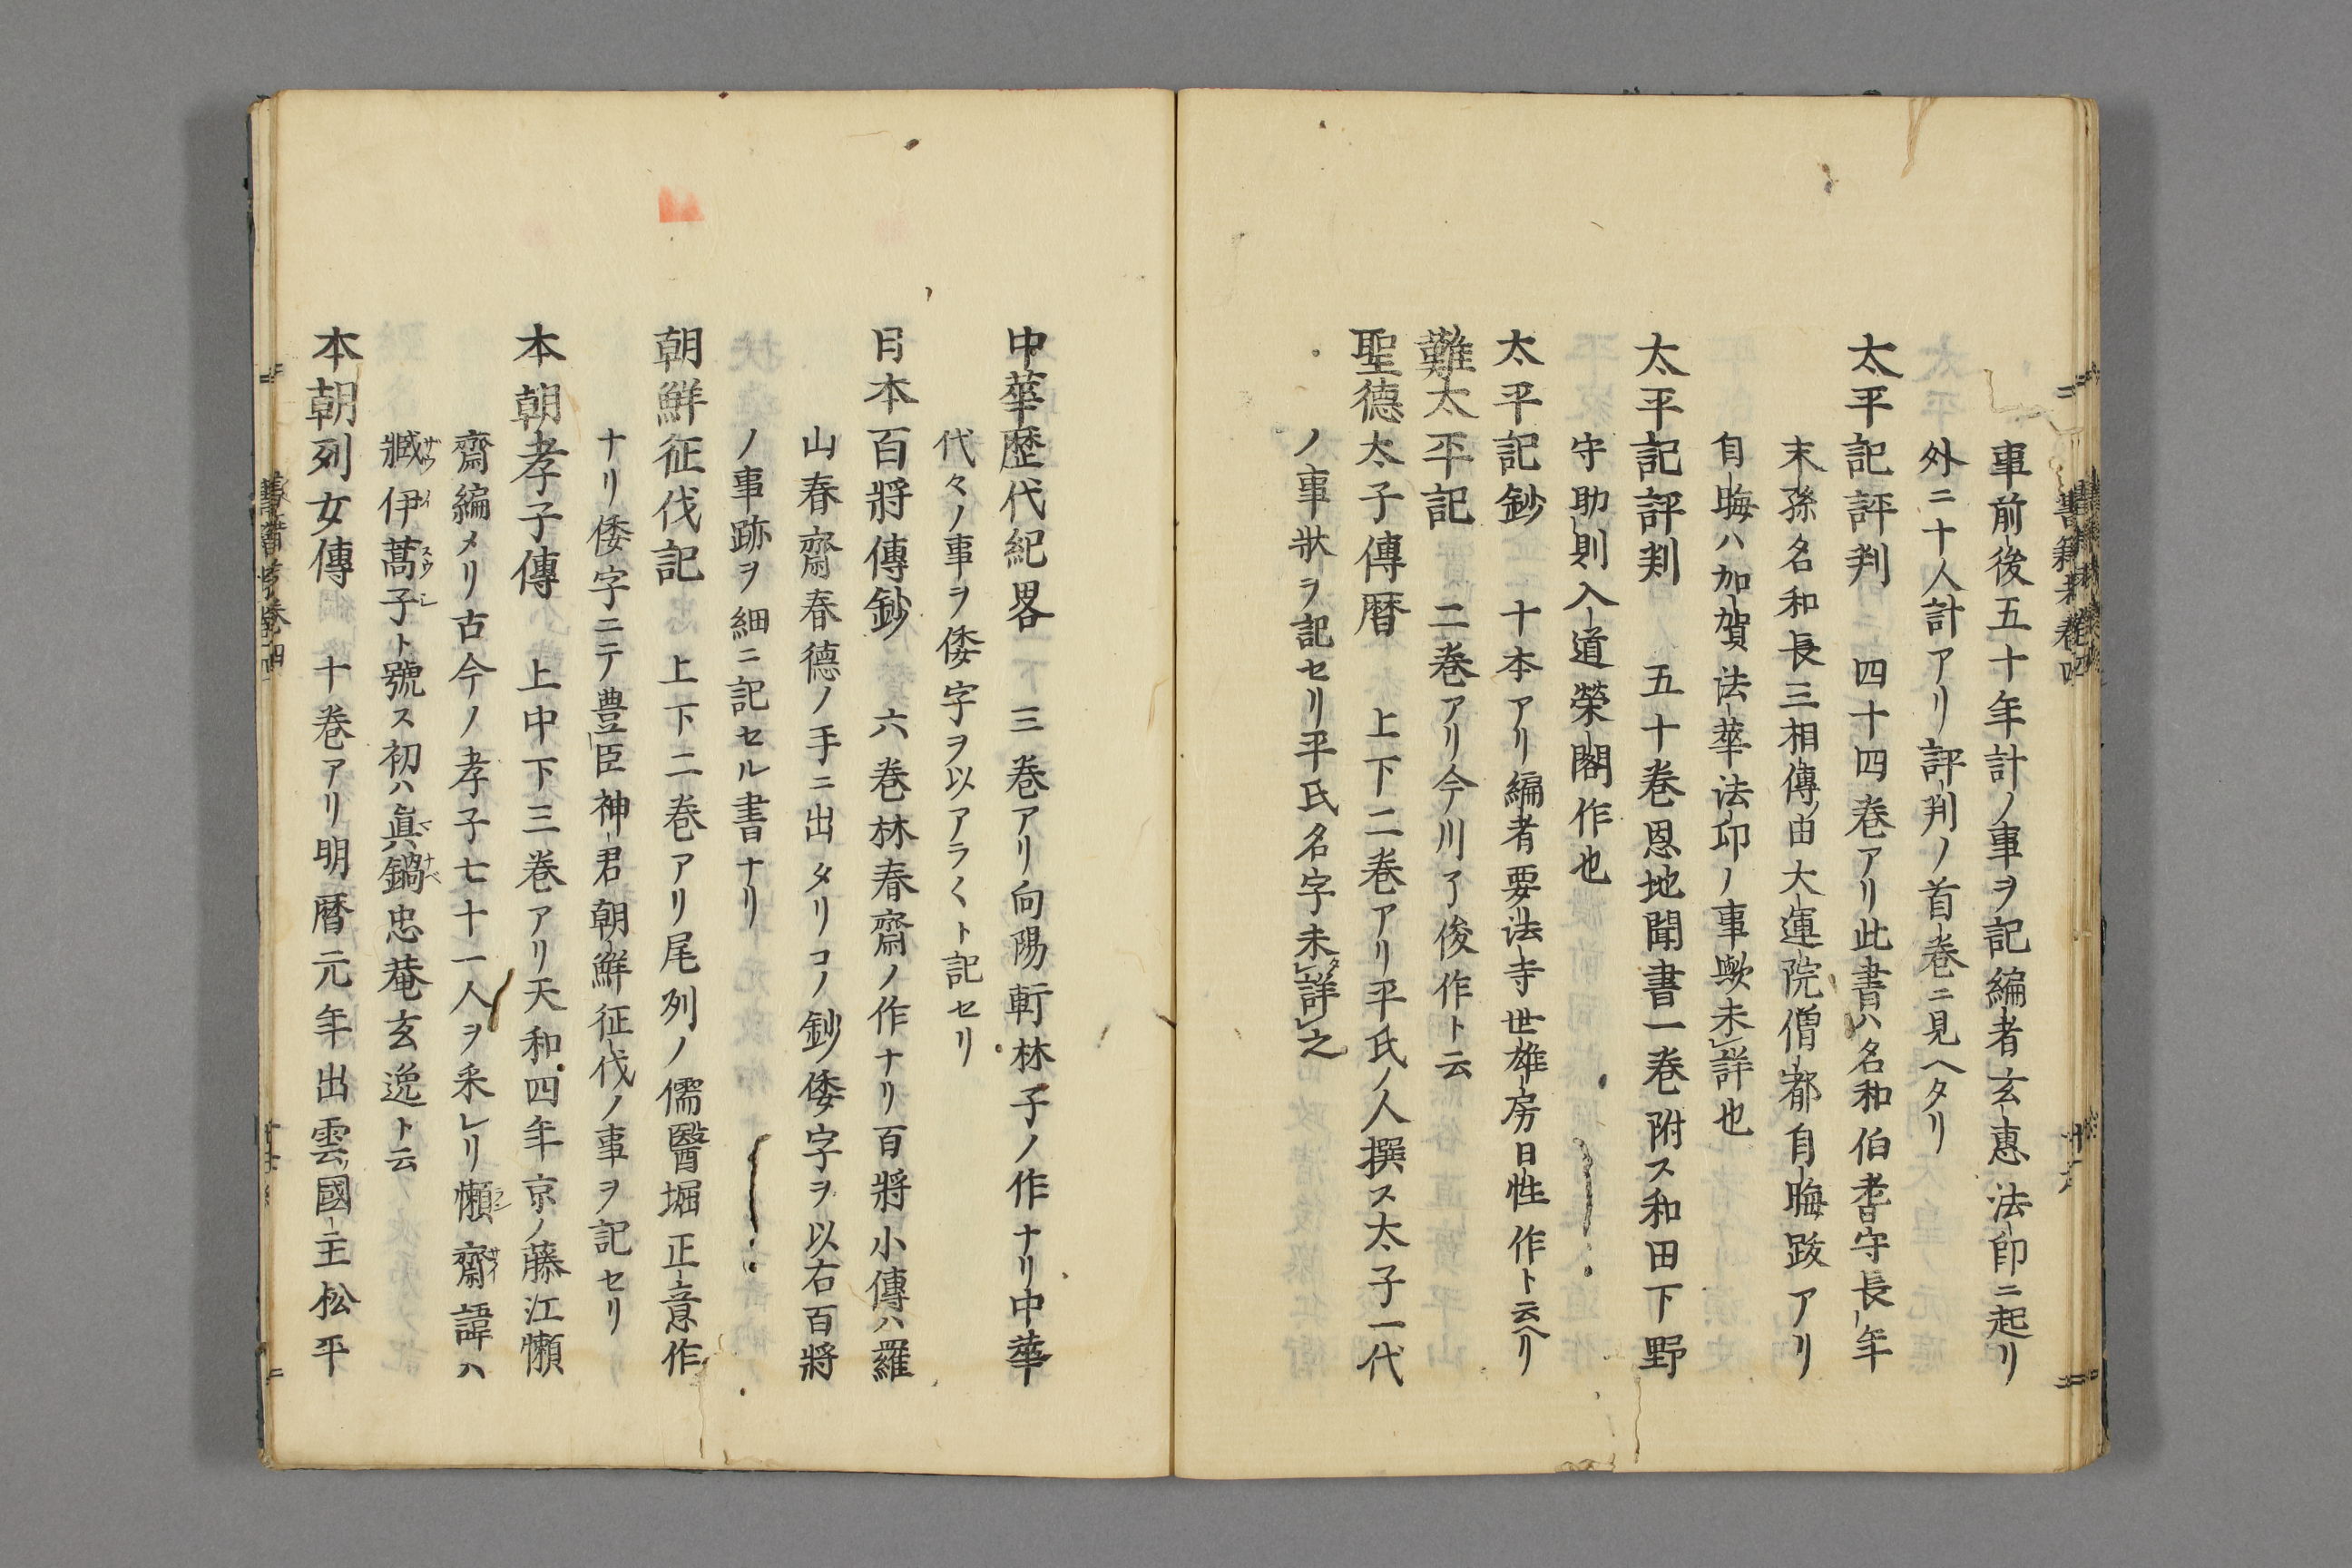 事前後五十年計ノ事ヲ記編者玄惠法印ニ起リ
外ニ十人計アリ評判ノ首巻ニ見ヘタリ
太平記評判　四十四巻アリ此書ハ名和伯耆守長年
末孫名和長三相傳ノ由大運院僧都自晦跋アリ
自晦ハ加賀法華法印ノ事歟未詳也
太平記評判　五十巻恩地聞書一巻附ス和田下野
守助則入道榮閣作也
太平記鈔　十本アリ編者要法寺世雄房日性作ト云ヘリ
難太平記　二巻アリ今川了俊作ト云
聖德太子傳暦　上下二巻アリ平氏ノ人撰ス太子一代
ノ事狀ヲ記セリ平氏名字未タ詳之
中華歴代紀畧　三巻アリ向陽軒林子ノ作ナリ中華
代々ノ事ヲ倭字ヲ以アラ〱ト記セリ
日本百將傳鈔　六巻林春齋ノ作ナリ百將小傳ハ羅
山春齋春德ノ手ニ出タリコノ鈔倭字ヲ以右百將
ノ事跡ヲ細ニ記セル書ナリ
朝鮮征伐記　上下二巻アリ尾列ノ儒醫堀正意作
ナリ倭字ニテ豊臣神君朝鮮征伐ノ事ヲ記セリ
本朝孝子傳　上中下三巻アリ天和四年京ノ藤江懶
齋編メリ古今ノ孝子七十一人ヲ釆レリ懶齋諱ハ
臧伊蒿子ト號ス初ハ眞鍋忠菴玄逸ト云
本朝列女傳　十巻アリ明暦元年出雲國主松平